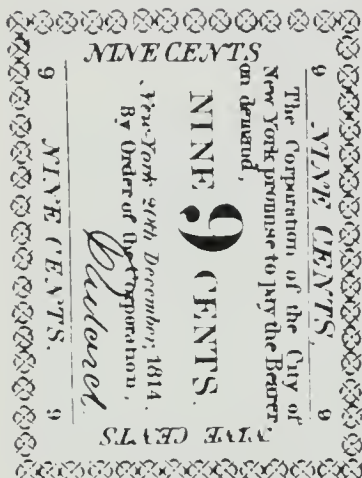 NINE CENTS
9 NINE CENTS. 9
The Corporation of the City of
New York promise to pay the Bearer,
on demand,
NINE 9 CENTS.
New-York 20th December, 1814.
By Order of the Corporation,
9 NINE CENTS. 9
NINE CENTS